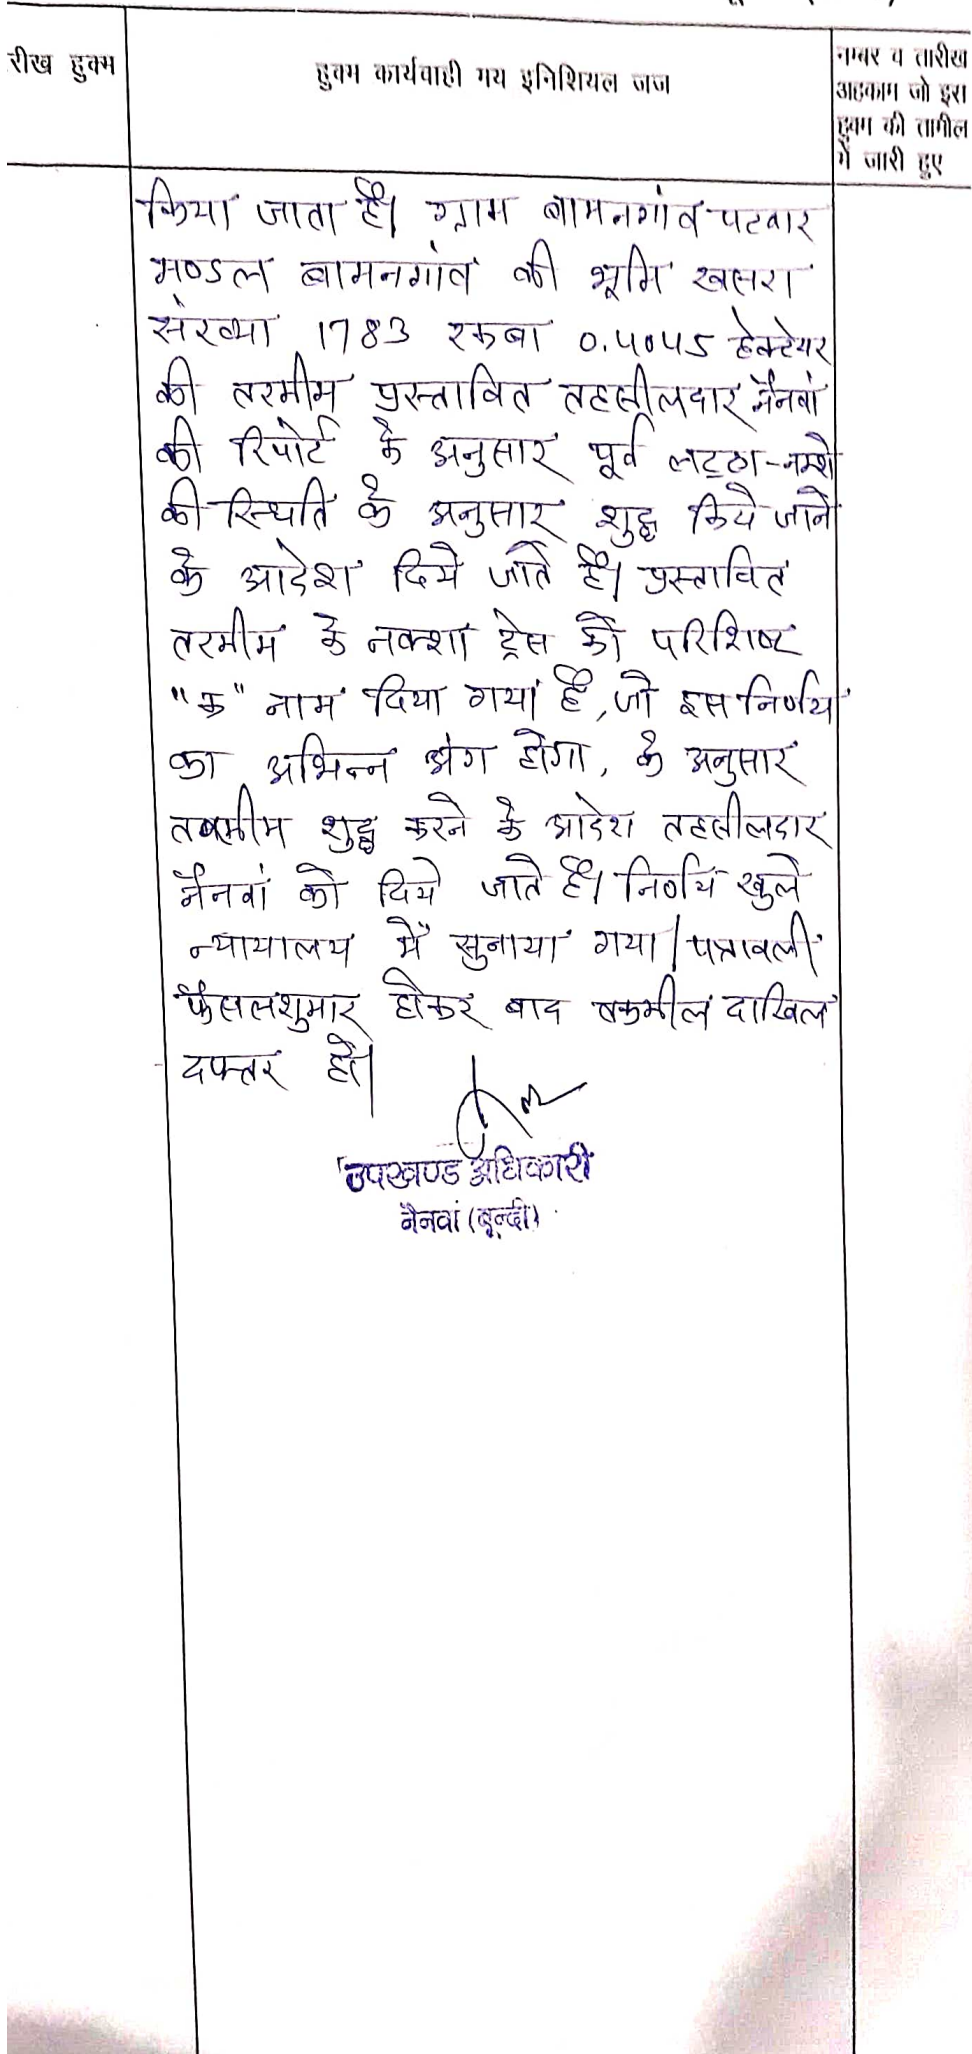 रीख हुक्म
हुक्म कार्यवाही मय इनिशियल जज
नम्बर व तारीख
अहकाम जो इस
हुक्म की तामील
में जारी हुए
किया जाता है। ग्राम बामनगांव पटवार
मण्डल बामनगांव की भूमि खसरा
संख्या 1783 रकबा 0.4045 हेक्टेयर
की तरमीम प्रस्तावित तहसीलदार नैनवां
की रिपोर्ट के अनुसार पूर्व लट्ठा-नक्शे
की स्थिति के अनुसार शुद्ध किये जाने
के आदेश दिये जाते है। प्रस्तावित
तरमीम के नक्शा ट्रेस को परिशिष्ट
"क" नाम दिया गया है, जो इस निर्णय
का अभिन्न अंग होगा, के अनुसार
शुद्ध करने के आदेश तहसीलदार
नैनवां को दिये जाते है। निर्णय खुले
न्यायालय में सुनाया गया। पत्रावली
फैसलशुमार होकर बाद तकमील दाखिल
दफ्तर हो।
उपखण्ड अधिकारी
नैनवां (बून्दी)